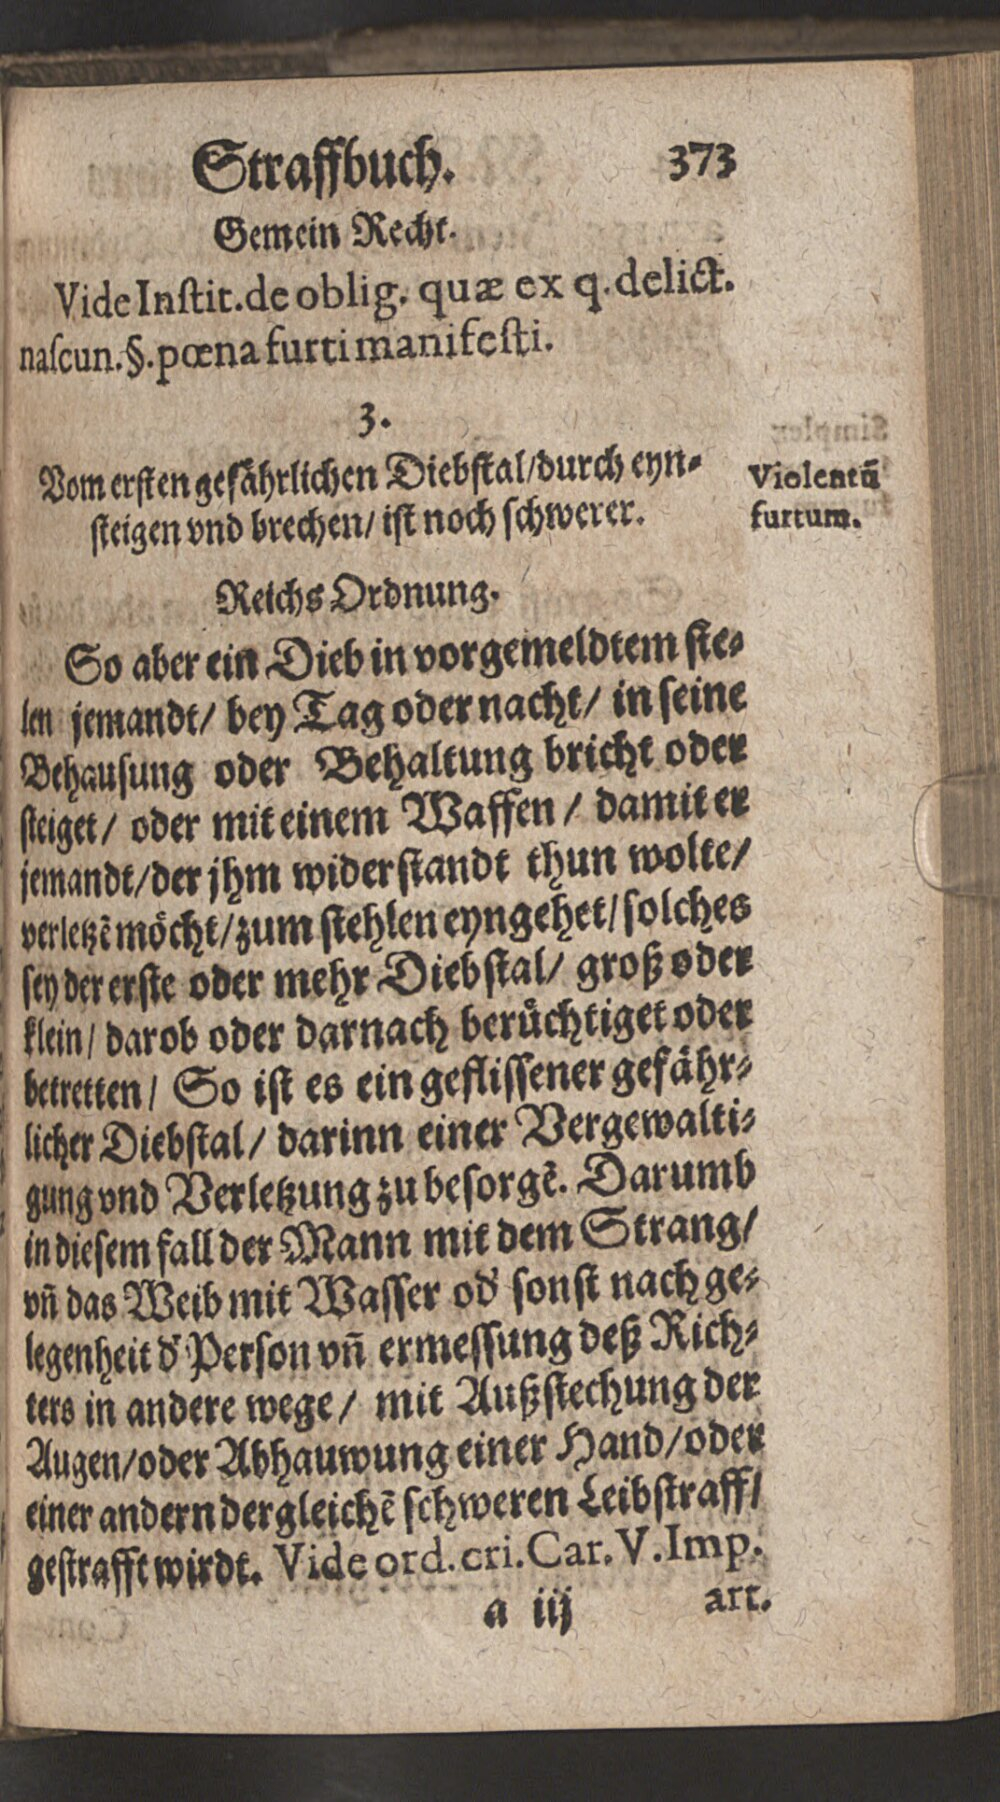 Straffbuch. 373
Gemein Recht.
Vide Instit. de oblig. quæ ex q. delict.
nascun. §. pœna furti manifesti.
3.
Vom ersten gefährlichen Diebstal/durch eyn-
steigen vnd brechen/ ist noch schwerer.
Violentũ
furtum.
Reichs Ordnung.
So aber ein Dieb in vorgemeldtem ste-
len jemandt/ bey Tag oder nacht/ in seine
Behausung oder Behaltung bricht oder
steiget/ oder mit einem Waffen / damit er
jemandt/der jhm widerstandt thun wolte/
verletzẽ möcht/zum stehlen eyngehet/solches
sey der erste oder mehr Diebstal/ groß oder
klein/ darob oder darnach berüchtiget oder
betretten/ So ist es ein geflissener gefähr-
licher Diebstal/ darinn einer Vergewalti-
gung vnd Verletzung zu besorgẽ. Darumb
in diesem fall der Mann mit dem Strang/
vñ das Weib mit Wasser od' sonst nach ge-
legenheit d' Person vñ ermessung deß Rich-
ters in andere wege/ mit Außstechung der
Augen/oder Abhauwung einer Hand/oder
einer andern dergleichẽ schweren Leibstraff/
gestrafft wirdt. Vide ord. cri. Car. V. Imp.
a iij art.